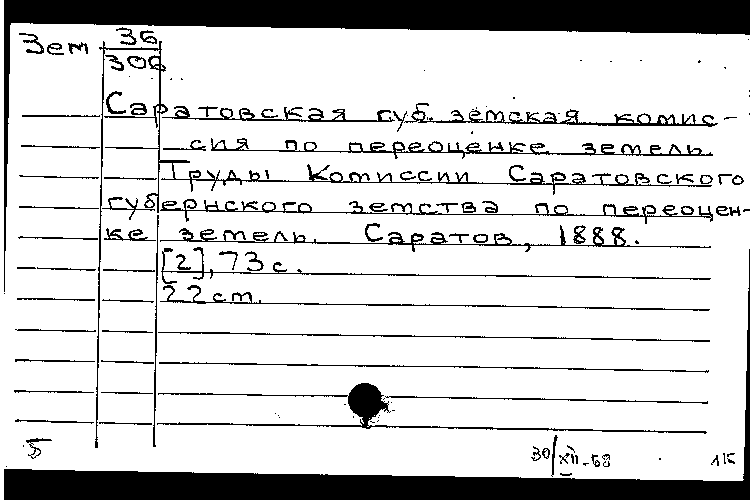 Зем 36
306
Саратовская губ. земская комис-
сия по переоценке земель.
Труды Комиссии Саратовского
губернского земства по переоцен-
ке земель. Саратов, 1888.
[2], 73 с.
22 cm.
5 30/XII-68